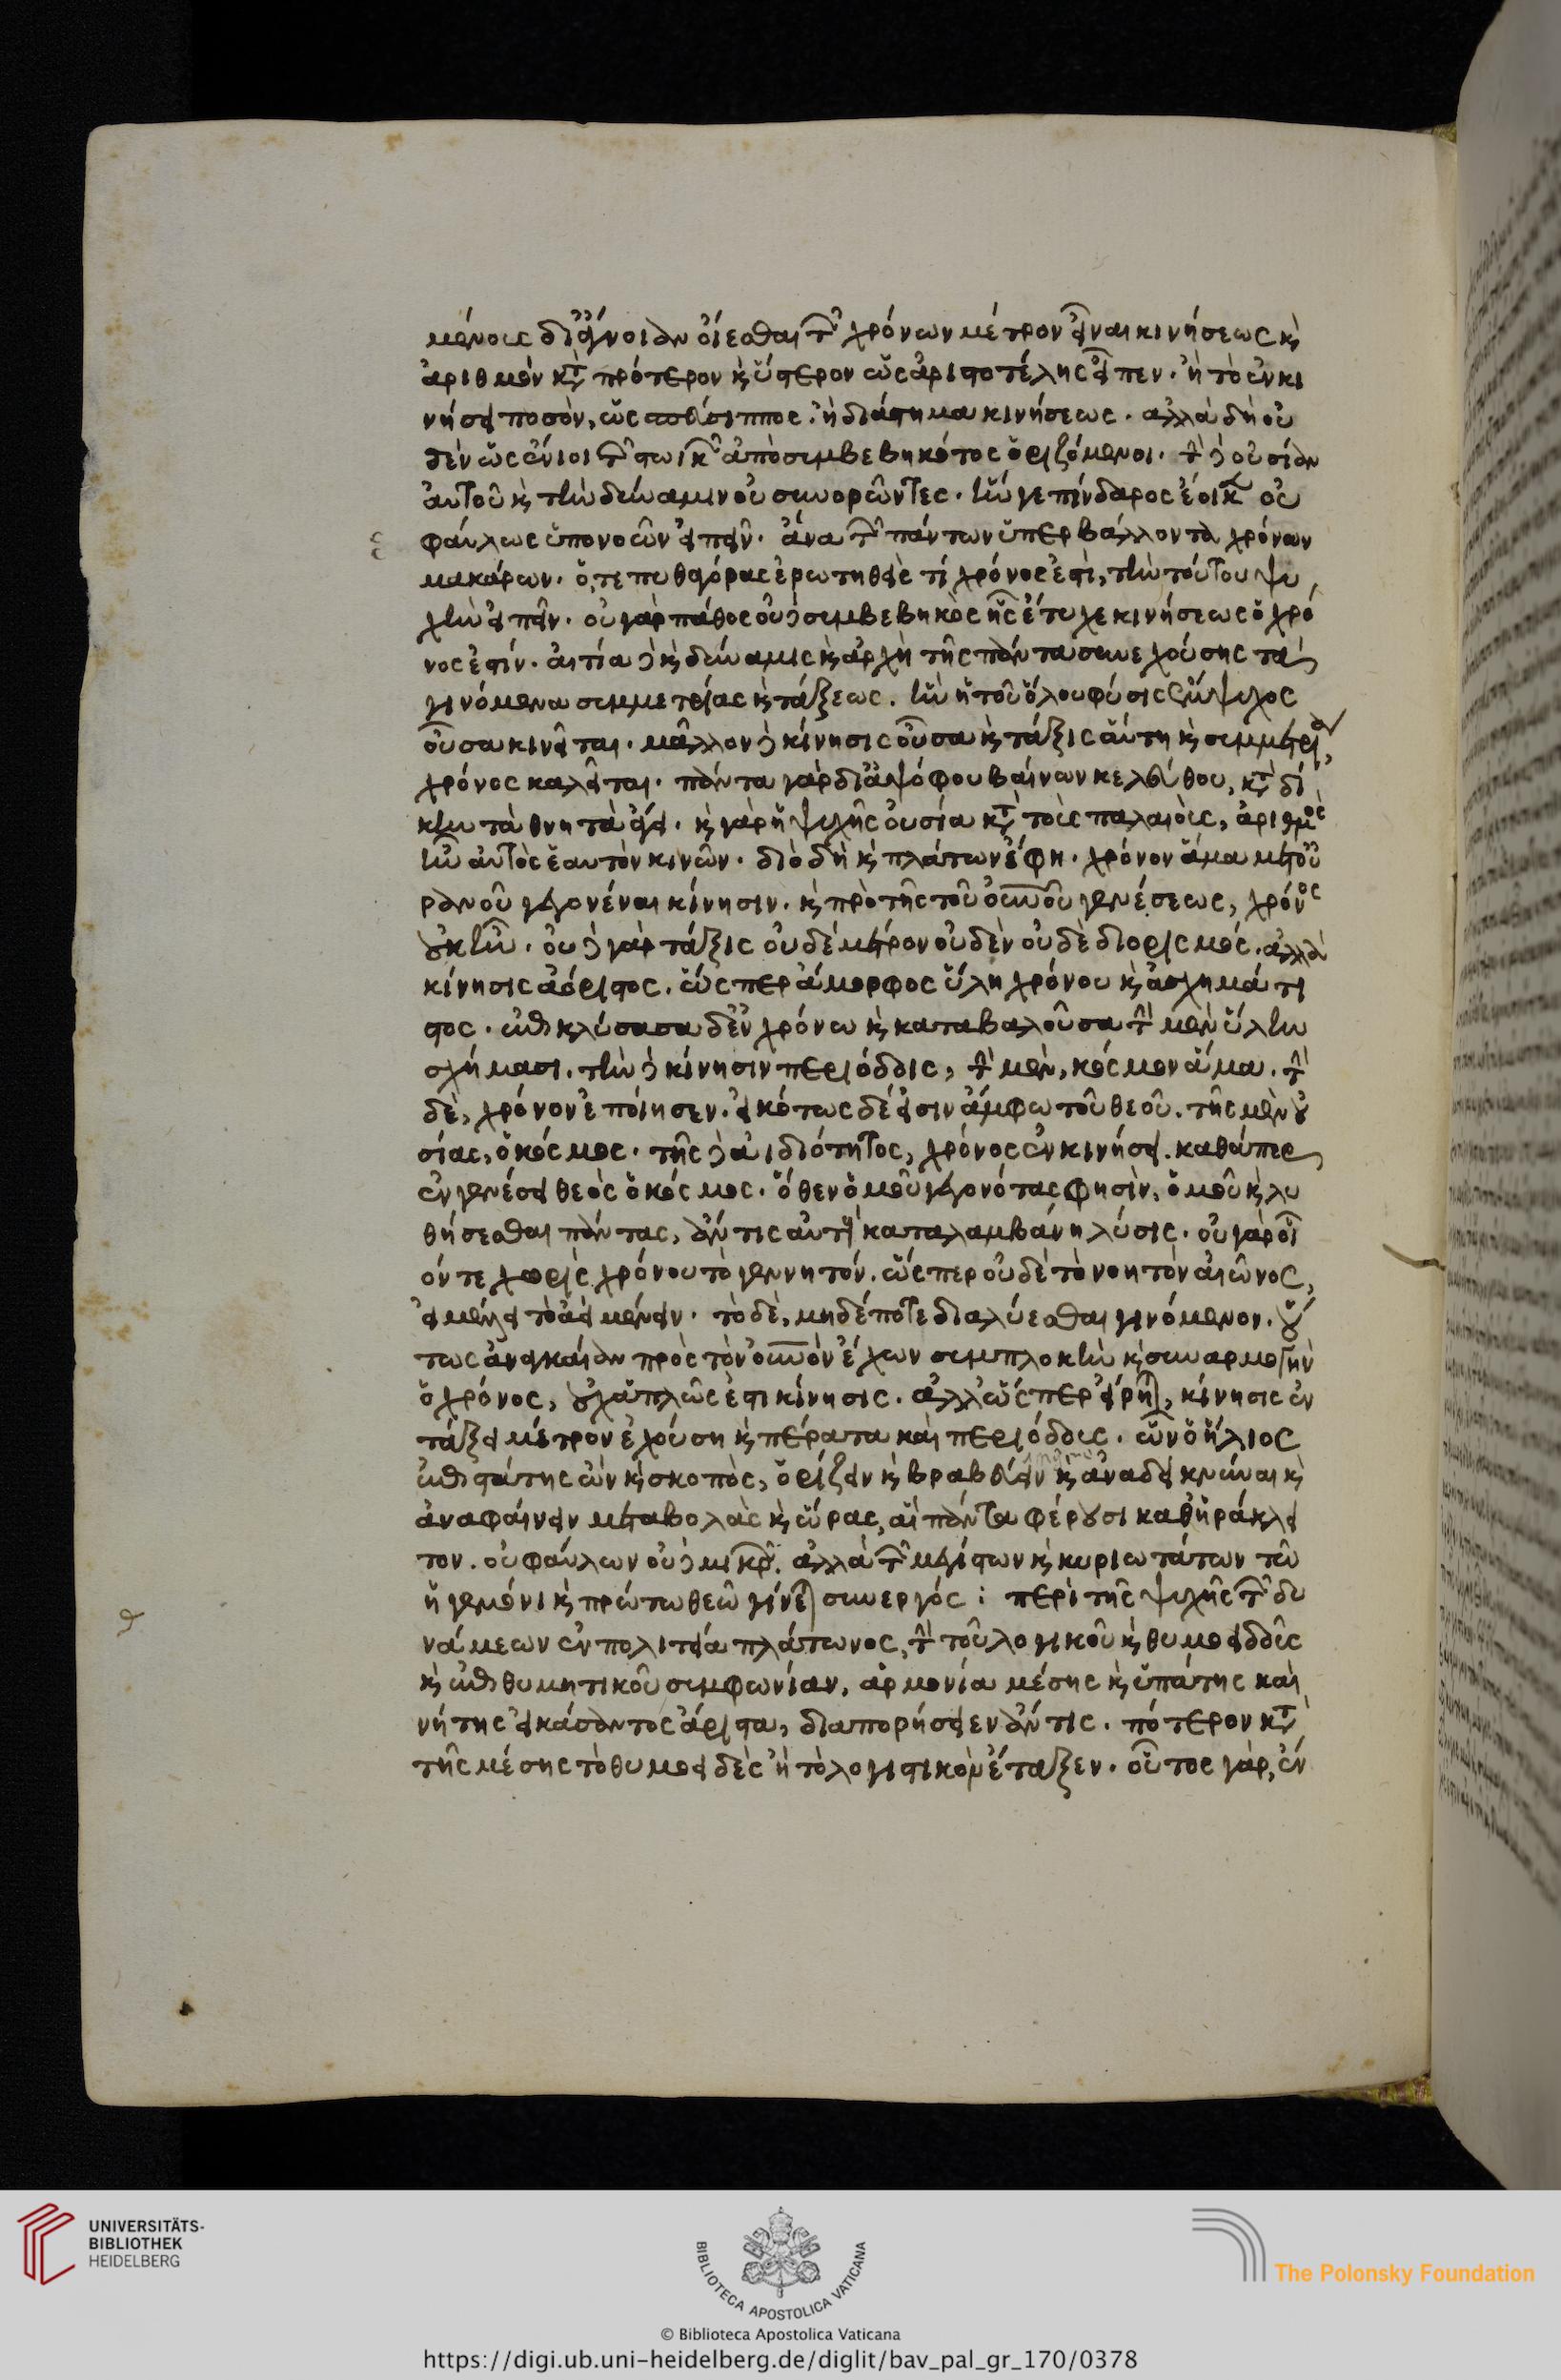 μένοις δι' ἄγνοιαν οἴεσθαι τὸν χρόνων μέτρον εἶναι κινήσεως κὶ
ἀριθμὸν κτ̀ πρότερον κὶ ὕστερον ὡς ἀριστοτέλης εἶπεν· ἢ τὸ ἐν κι
νήσει ποσὸν, ὡς σπεύσιππος· ἢ διάστημα κινήσεως. ἀλλὰ δὴ οὐ
δὲν ὡς ἔνιοι τῶν στωικῶν ἀπὸ συμβεβηκότος ὁριζόμενοι. τὴν δὲ οὐσίαν
αὐτοῦ κὶ τὴν δύναμιν οὐ συνορῶντες. ἣν γε πίνδαρος ἔοικεν οὐ
φαύλως ὑπονοῶν εἰπεῖν. ἄνα τῶν πάντων ὑπερβάλλοντα χρόνων
μακάρων. ὅ, τε πυθαγόρας ἐρωτηθεὶς τί χρόνος ἐστὶ, τὴν τούτου ψυ
χὴν εἰπεῖν. οὐ γὰρ πάθος οὐδὲ συμβεβηκὸς ἧς ἔτυχε κινήσεως ὁ χρό
νος ἐστίν. αἰτία δὲ κὶ δύναμις κὶ ἀρχὴ τῆς πάντα συνεχούσης τὰ
γινόμενα συμμετρίας κὶ τάξεως. ἣν ἡ τοῦ ὅλου φύσις ἔμψυχος
οὖσα κινεῖται. μᾶλλον δὲ κίνησις οὖσα κὶ τάξις αὕτη κὶ συμμετρία,
χρόνος καλεῖται. πάντα γὰρ δι' ἀψόφου βαίνων κελεύθου, κτ̀ δί
κην τὰ θνητὰ ἄγει. κὶ γὰρ ἡ ψυχῆς οὐσία κτ̀ τοὺς παλαιοὺς, ἀριθμὸς
ἦν αὐτὸς ἑαυτὸν κινῶν. διὸ δὴ κὶ πλάτων ἔφη. χρόνον ἅμα μετ' οὐ
ρανοῦ γεγονέναι κίνησιν. κὶ πρὸ τῆς τοῦ οὐνοῦ γενέσεως, χρόνος
οὐκ ἦν. οὐδὲ γὰρ τάξις οὐδὲ μέτρον οὐδὲν οὐδὲ διορισμός. ἀλλὰ
κίνησις ἀόριστος. ὥσπερ ἄμορφος ὕλη χρόνου κὶ ἀσχημάτι
στος. ἐπικλύσασα δ' ἐν χρόνω κὶ καταβαλοῦσα τὴν μὲν ὕλην
σχήμασι. τὴν δὲ κίνησιν περιόδοις, τὴν μὲν, κόσμον ἅμα. τὴν
δὲ, χρόνον ἐποίησεν. εἰκότως δέ εἰσιν ἄμφω τοῦ θεοῦ. τῆς μὲν οὐ
σίας, ὁ κόσμος. τῆς δὲ ἀιδιότητος, χρόνος ἐν κινήσει. καθάπερ
ἐν γενέσει θεὸς ὁ κόσμος. ὅθεν ὁμοῦ γεγονότας φησὶν, ὁμοῦ κὶ λυ
θήσεσθαι πάντας, ἄν τις αὐτοὺς καταλαμβάνη λύσις. οὐ γὰρ οἷ
όν τε χωρὶς χρόνου τὸ γεννητόν. ὥσπερ οὐδὲ τὸ νοητὸν αἰῶνος,
εἰ μέλλει τὸ ἀεὶ μένειν. τὸ δὲ, μηδέποτε διαλύεσθαι γινόμενον. οὕ
τως ἀναγκαίαν πρὸς τὸν οὐνὸν ἔχων συμπλοκὴν κὶ συναρμογὴν
ὁ χρόνος, οὐχ ἁπλῶς ἐστι κίνησις. ἀλλ' ὥσπερ εἴρηται, κίνησις ἐν
τάξει μέτρον ἐχούση κὶ πέρατα καὶ περιόδους. ὧν ὁ ἥλιος
ἐπιστάτης ὢν κὶ σκοπὸς, ὁρίζειν κὶ βραβεύειν κὶ ἀναδεικνύναι κὶ
ἀναφαίνειν μεταβολὰς κὶ ὥρας, αἳ πάντα φέρουσι καθ' ἡράκλει
τον. οὐ φαύλων οὐδὲ μικρῶν. ἀλλὰ τῶν μεγίστων κὶ κυριωτάτων τῶ
ἡγεμόνι κὶ πρώτω θεῶ γίνεται συνεργός : περὶ τῆς ψυχῆς τῶν δυ
νάμεων ἐν πολιτεία πλάτωνος, τὴν τοῦ λογικοῦ κὶ θυμοειδοῦς
κὶ ἐπιθυμητικοῦ συμφωνίαν, ἁρμονία μέσης κὶ ὑπάτης καὶ
νήτης εἰκάσαντος ἄριστα, διαπορήσειεν ἄν τις. πότερον κτ̀
τῆς μέσης τὸ θυμοειδὲς ἢ τὸ λογιστικὸν ἔταξεν. οὗτος γὰρ, ἐν
UNIVERSITÄTS-
BIBLIOTHEK
HEIDELBERG
BIBLIOTECA APOSTOLICA VATICANA
The Polonsky Foundation
© Biblioteca Apostolica Vaticana
https://digi.ub.uni-heidelberg.de/diglit/bav_pal_gr_170/0378